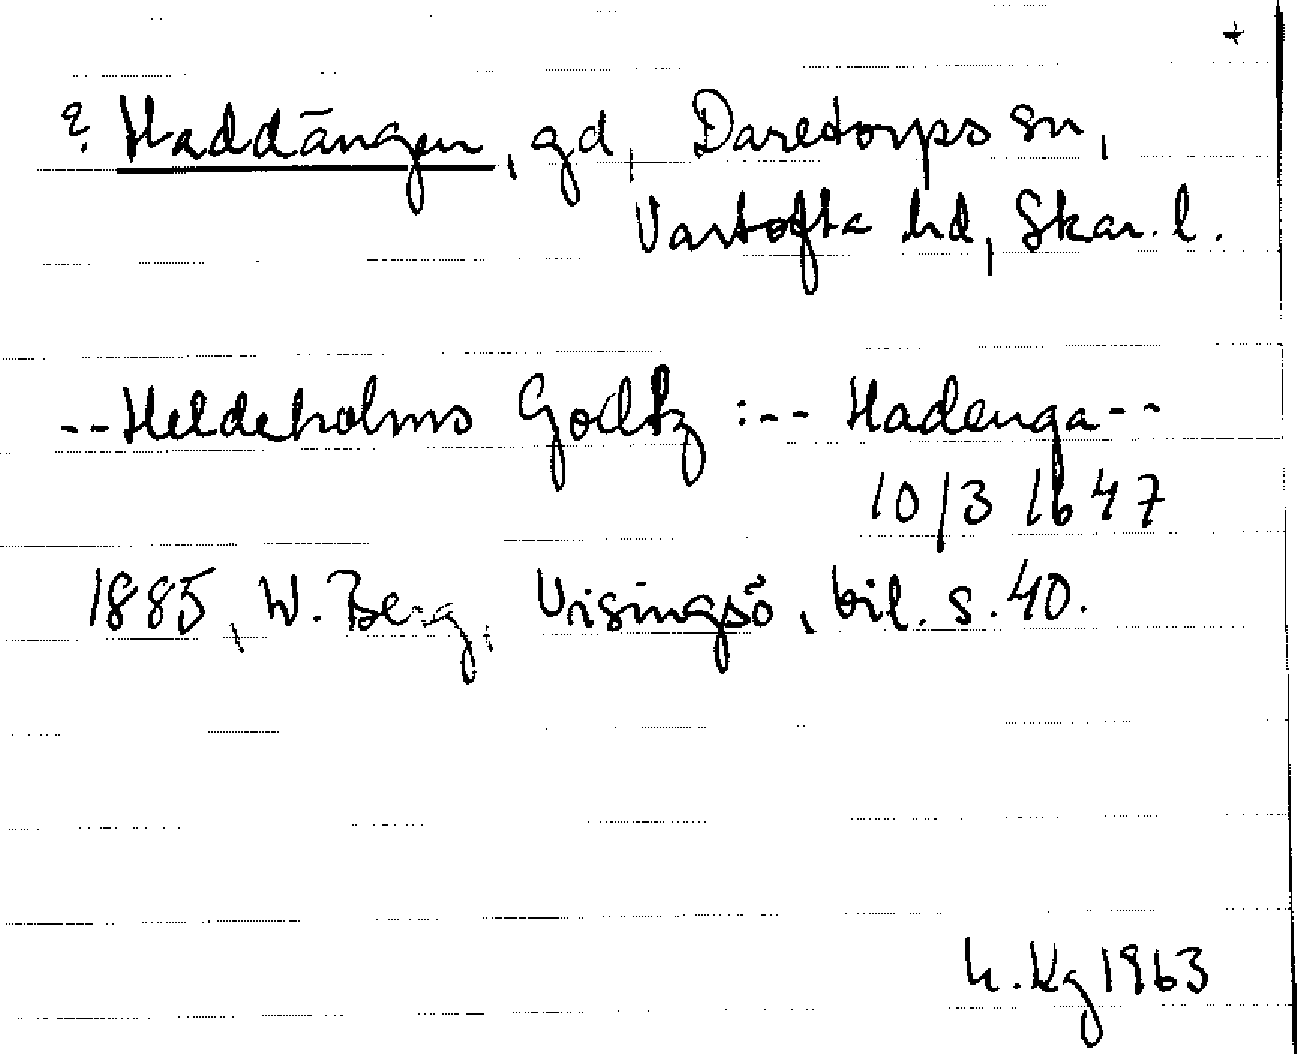 +
? Haddängen, gd, Daretorps sn,
Vartofta hd, Skar. l.
--Heldeholms Godtz :-- Hadenga--
10/3 1647
1885, W. Berg, Visingsö, bil. s. 40.
h. Kg 1963